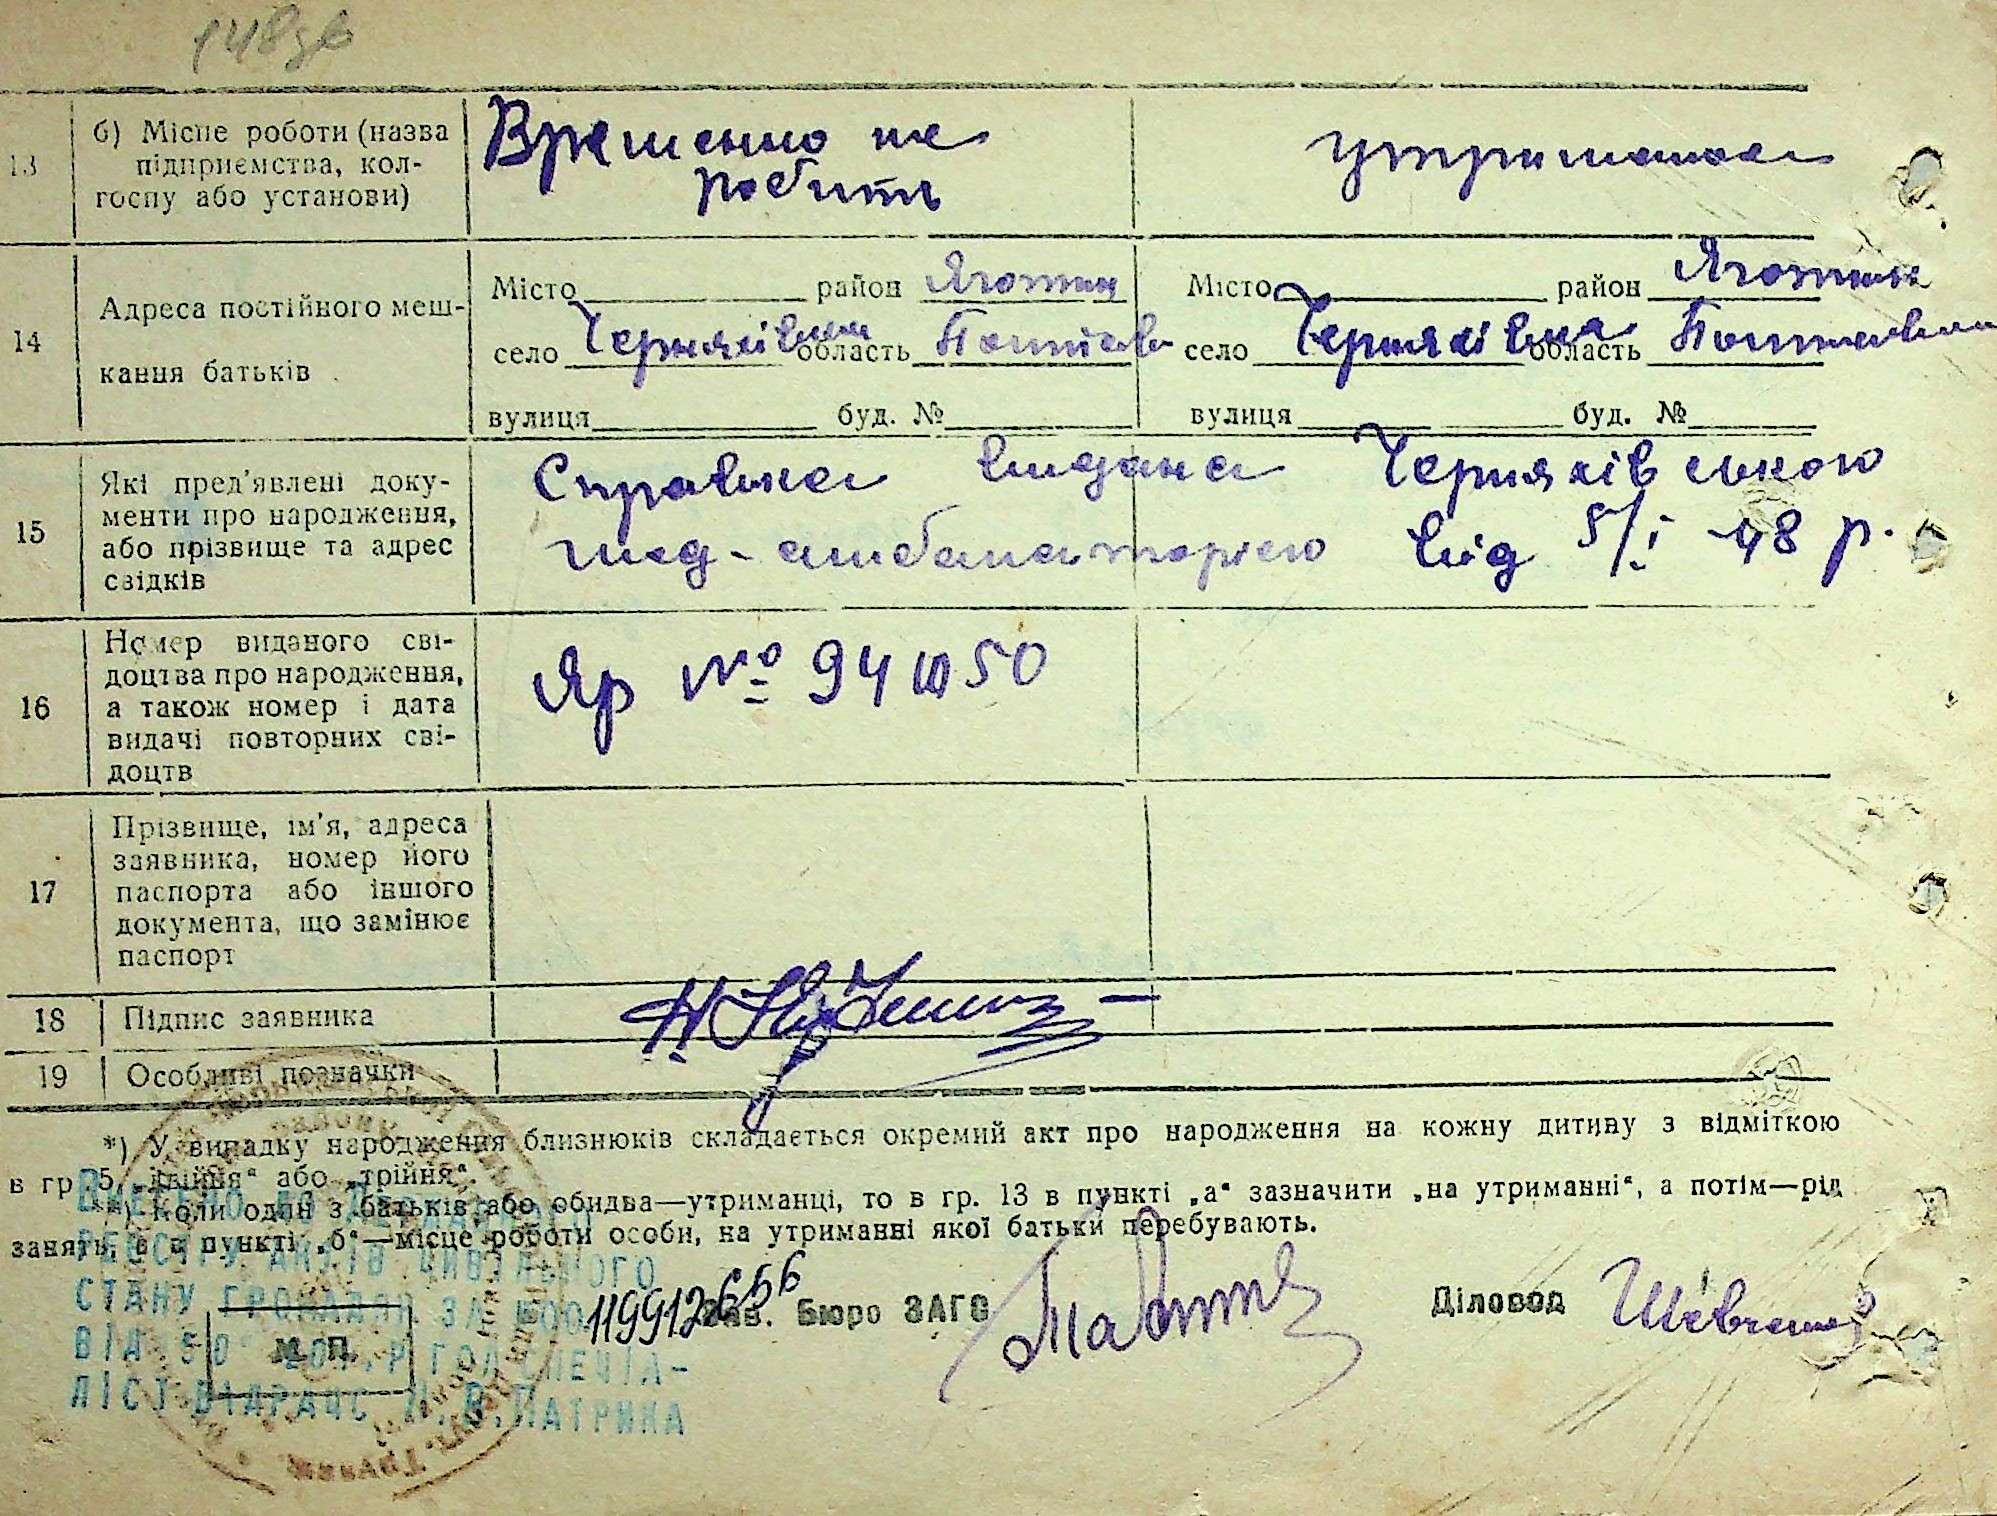 148зв
13
б) Місце роботи (назва
підприємства, кол-
госпу або установи)
Временно не
робить
утриманка
14
Адреса постійного меш-
кання батьків
Місто район Яготин
село Черняхівка область Полтавс
вулиця буд. №
Місто район Яготин
село Черняхівка область Полтавська
вулиця буд. №
15
Які пред'явлені доку-
менти про народження,
або прізвище та адрес
свідків
Справка видана Черняхівською
мед-амбалаторією від 5/I 48 р.
16
Номер виданого сві-
доцтва про народження,
а також номер і дата
видачі повторних сві-
доцтв
Яр № 94 50
17
Прізвище, ім'я, адреса
заявника, номер його
паспорта або іншого
документа, що замінює
паспорт
18
Підпис заявника
19
Особливі позначки
*) У випадку народження близнюків складається окремий акт про народження на кожну дитину з відміткою
в гр. 5 „двійня“ або „трійня“.
**) Коли один з батьків або обидва—утриманці, то в гр. 13 в пункті „а“ зазначити „на утриманні“, а потім—рід
занять, а в пункті „б“—місце роботи особи, на утриманні якої батьки перебувають.
Внесено до Державного
реєстру актів цивільного
стану громадян за №00
119912656
Зав. Бюро ЗАГС
Діловод Шевченко
М. П.
від 50 р гол.спеціа-
ліст відрацс Н.В.Патрина